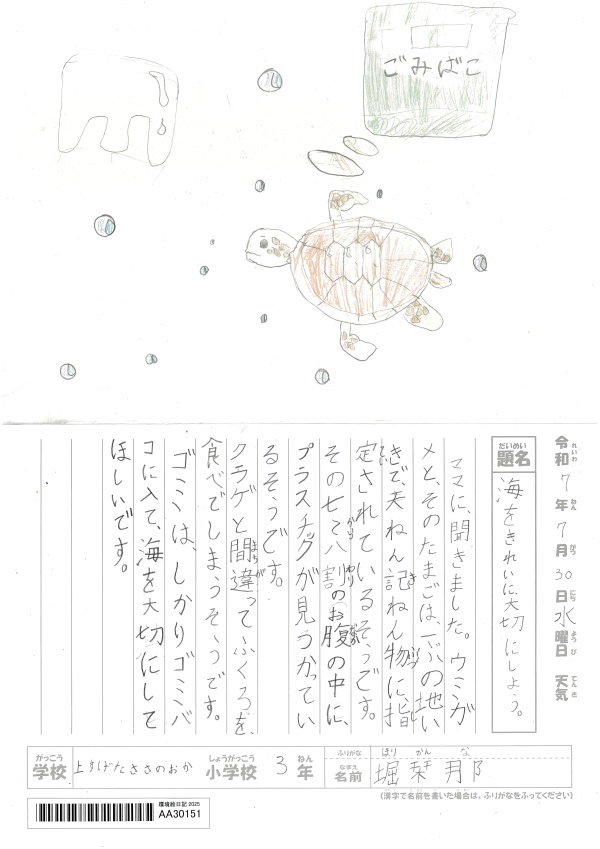 ごみばこ
令和7年7月30日水曜日 天気
れいわ ねん がつ にち ようび てんき
だいめい
題名
海をきれいに大切にしよう。
ママに、聞きました。ウミガ
メと、そのたまごは、一ぶの地い
きで、天ねん記ねん物に、指
定されているそうです。
その七〜八割のお腹の中に、
プラスチックが見つかってい
るそうです。
クラゲと間違ってふくろを、
食べでしまうそうです。
ゴミは、しかりゴミバ
コに入て、海を大切にして
ほしいです。
がっこう しょうがっこう ねん
学校 上すげたささのおか 小学校 3年
ふりがな ほり かん な
なまえ
名前 堀 栞那
(漢字で名前を書いた場合は、ふりがなをふってください)
環境絵日記 2025
AA30151